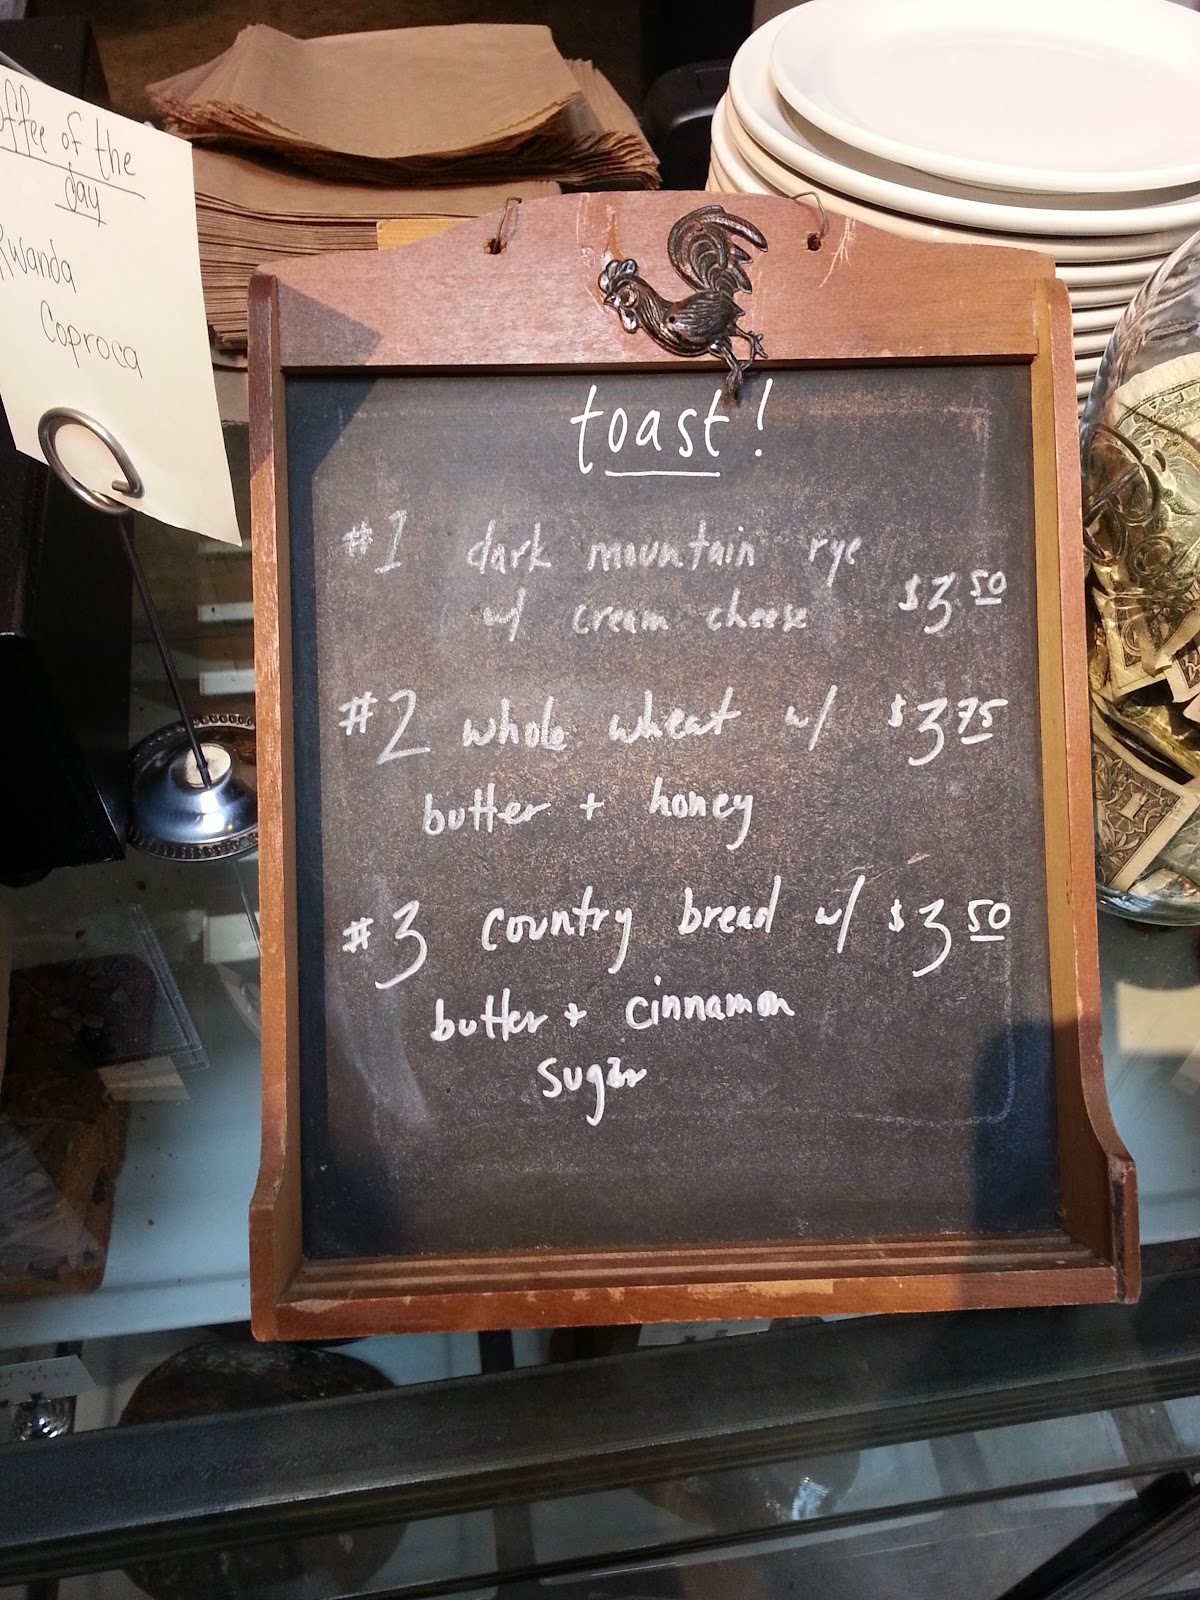 offee of the
day
Rwanda
Coproca
toast!
#1 dark mountain rye
w/ cream cheese $3.50
#2 whole wheat w/ $3.75
butter + honey
#3 country bread w/ $3.50
butter + cinnamon
sugar